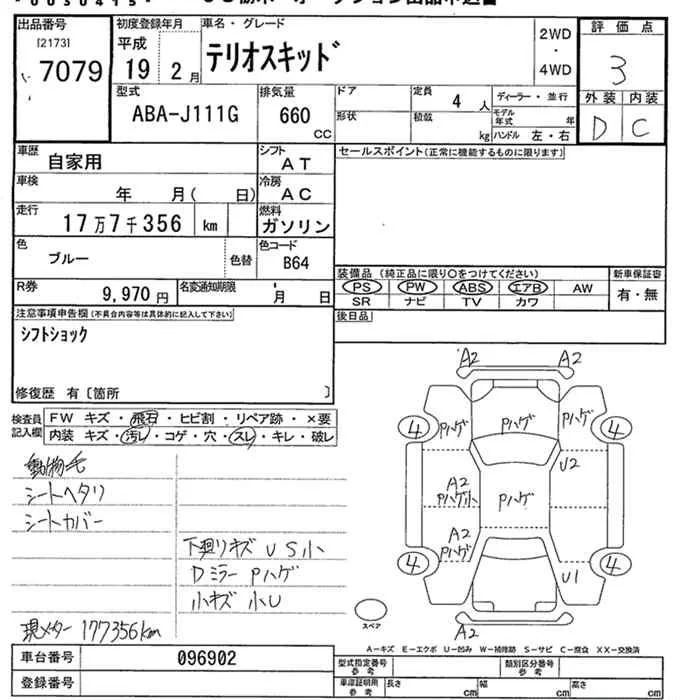 出品番号
[2173]
7079
初度登録年月
平成
19 2月
車名・グレード
テリオスキッド
2WD
・
4WD
評価点
3
外装 内装
D C
型式
ABA-J111G
排気量
660
CC
ドア
形状
定員
4 人
積載
kg
ディーラー・並行
モデル
年式 年
ハンドル 左・右
車歴
自家用
シフト
AT
セールスポイント(正常に機能するものに限ります)
車検
年 月( 日)
冷房
AC
走行
17万7千356 km
燃料
ガソリン
色
ブルー
色替
色コード
B64
R券
9,970円
名変通知期限
月 日
装備品(純正品に限り〇をつけてください)
PS PW ABS エアB AW
SR ナビ TV カワ
新車保証書
有・無
注意事項申告欄(不具合内容等は具体的に記入して下さい)
シフトショック
修復歴 有〔箇所 〕
後日品
検査員
記入欄
FW キズ・飛石・ヒビ割・リペア跡・×要
内装 キズ・汚レ・コゲ・穴・スレ・キレ・破レ
動物毛
シートヘタリ
シートカバー
下廻りキズ US小
Dミラー Pハゲ
小キズ 小U
現メーター 177356km
A2 A2
4 Pハゲ Pハゲ Pハゲ 4
U2
A2
Pハゲ小 Pハゲ
A2
Pハゲ
4 4
U1
A2
スペア
A-キズ E-エクボ U-凹み W-補修跡 S-サビ C-腐食 XX-交換済
車台番号
096902
登録番号
型式指定番号
参考
類別区分番号
参考
車庫証明用
参考
長さ cm 幅 cm 高さ cm